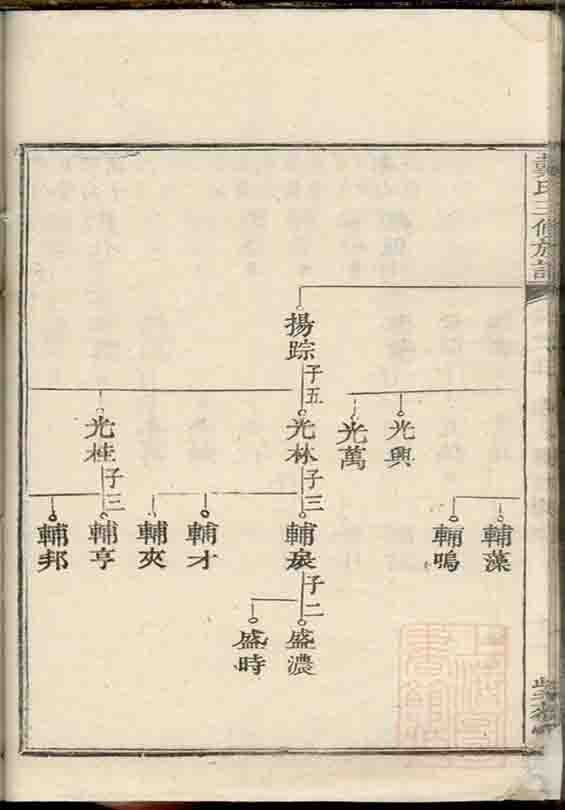 氏三修族譜
揚踪
子五
光興
光萬
光林
子三
光桂
子三
輔藻
輔鳴
輔
子二
輔才
輔夾
輔亨
輔邦
盛濃
盛時
上海圖書館藏